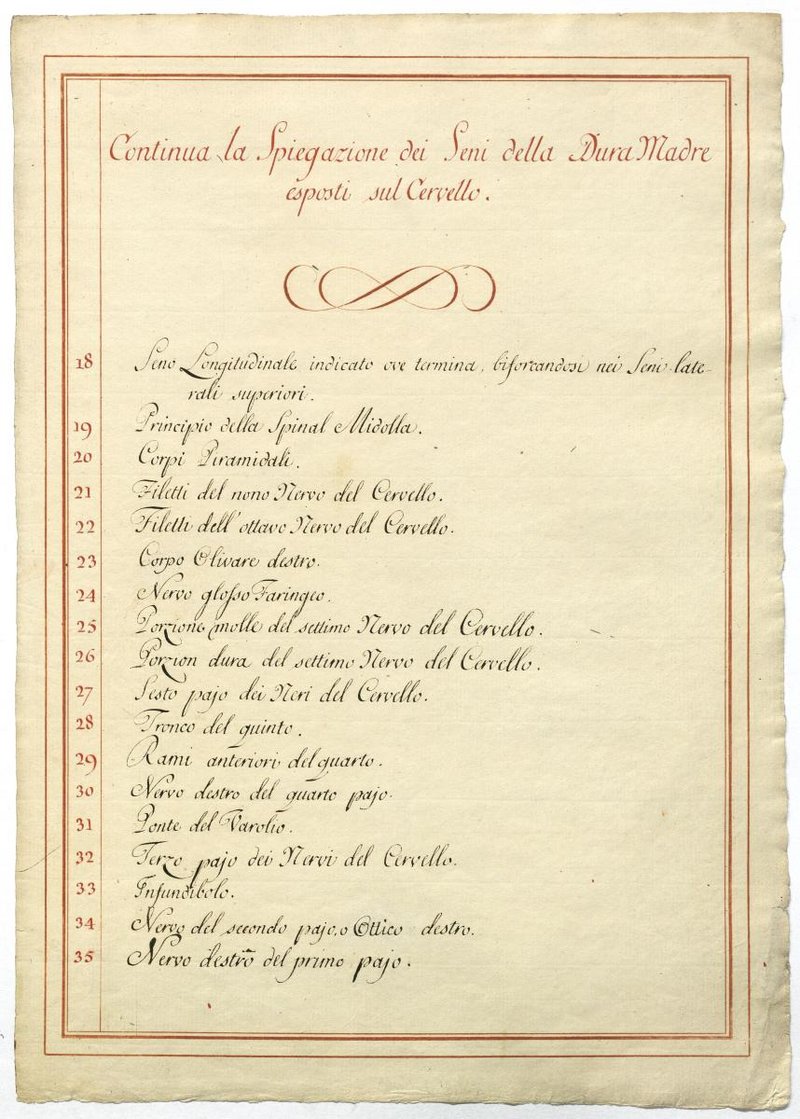 Continua la Spiegazione dei Seni della Dura Madre
esposti sul Cervello.
18 Seno Longitudinale indicato ove termina, biforcandosi nei Seni late-
rali superiori.
19 Principio della Spinal Midolla.
20 Corpi Piramidali.
21 Filetti del nono Nervo del Cervello.
22 Filetti dell'ottavo Nervo del Cervello.
23 Corpo Olivare destro.
24 Nervo glosso Faringeo.
25 Porzione molle del settimo Nervo del Cervello.
26 Porzion dura del settimo Nervo del Cervello.
27 Sesto pajo dei Neri del Cervello.
28 Tronco del quinto.
29 Rami anteriori del quarto.
30 Nervo destro del quarto pajo.
31 Ponte del Varolio.
32 Terzo pajo dei Nervi del Cervello.
33 Infundibolo.
34 Nervo del secondo pajo, o Ottico destro.
35 Nervo destro del primo pajo.